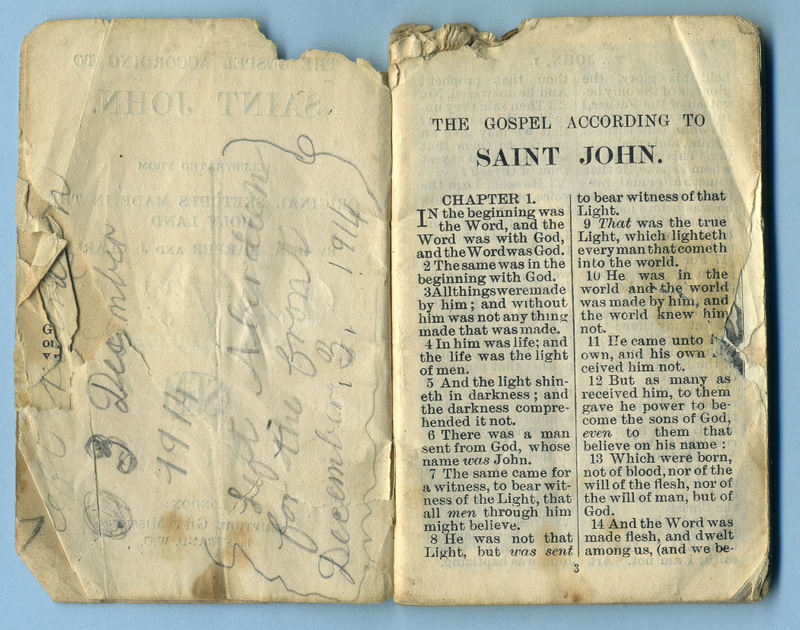 Left Aberdeen
for the front
December. 3. 1914
3 December
1914
THE GOSPEL ACCORDING TO
SAINT JOHN.
CHAPTER 1.
IN the beginning was
the Word, and the
Word was with God,
and the Word was God.
2 The same was in the
beginning with God.
3 All things were made
by him; and without
him was not any thing
made that was made.
4 In him was life; and
the life was the light
of men.
5 And the light shin-
eth in darkness; and
the darkness compre-
hended it not.
6 There was a man
sent from God, whose
name was John.
7 The same came for
a witness, to bear wit-
ness of the Light, that
all men through him
might believe.
8 He was not that
Light, but was sent
to bear witness of that
Light.
9 That was the true
Light, which lighteth
every man that cometh
into the world.
10 He was in the
world and the world
was made by him, and
the world knew him
not.
11 He came unto h
own, and his own
ceived him not.
12 But as many as
received him, to them
gave he power to be-
come the sons of God,
even to them that
believe on his name:
13 Which were born,
not of blood, nor of the
will of the flesh, nor of
the will of man, but of
God.
14 And the Word was
made flesh, and dwelt
among us, (and we be-
3